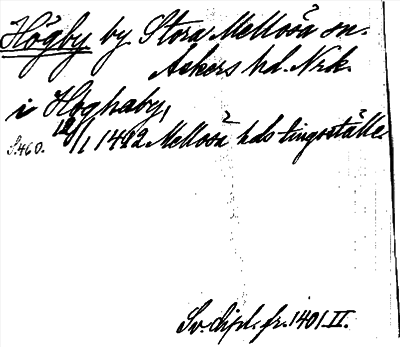 Högby by Stora Mellösa sn.
Askers hd. Nrk.
i Høghaby,
S. 460. 12/1 1412 Mellösa hds tingställe
Sv. dipl. fr. 1401 II.